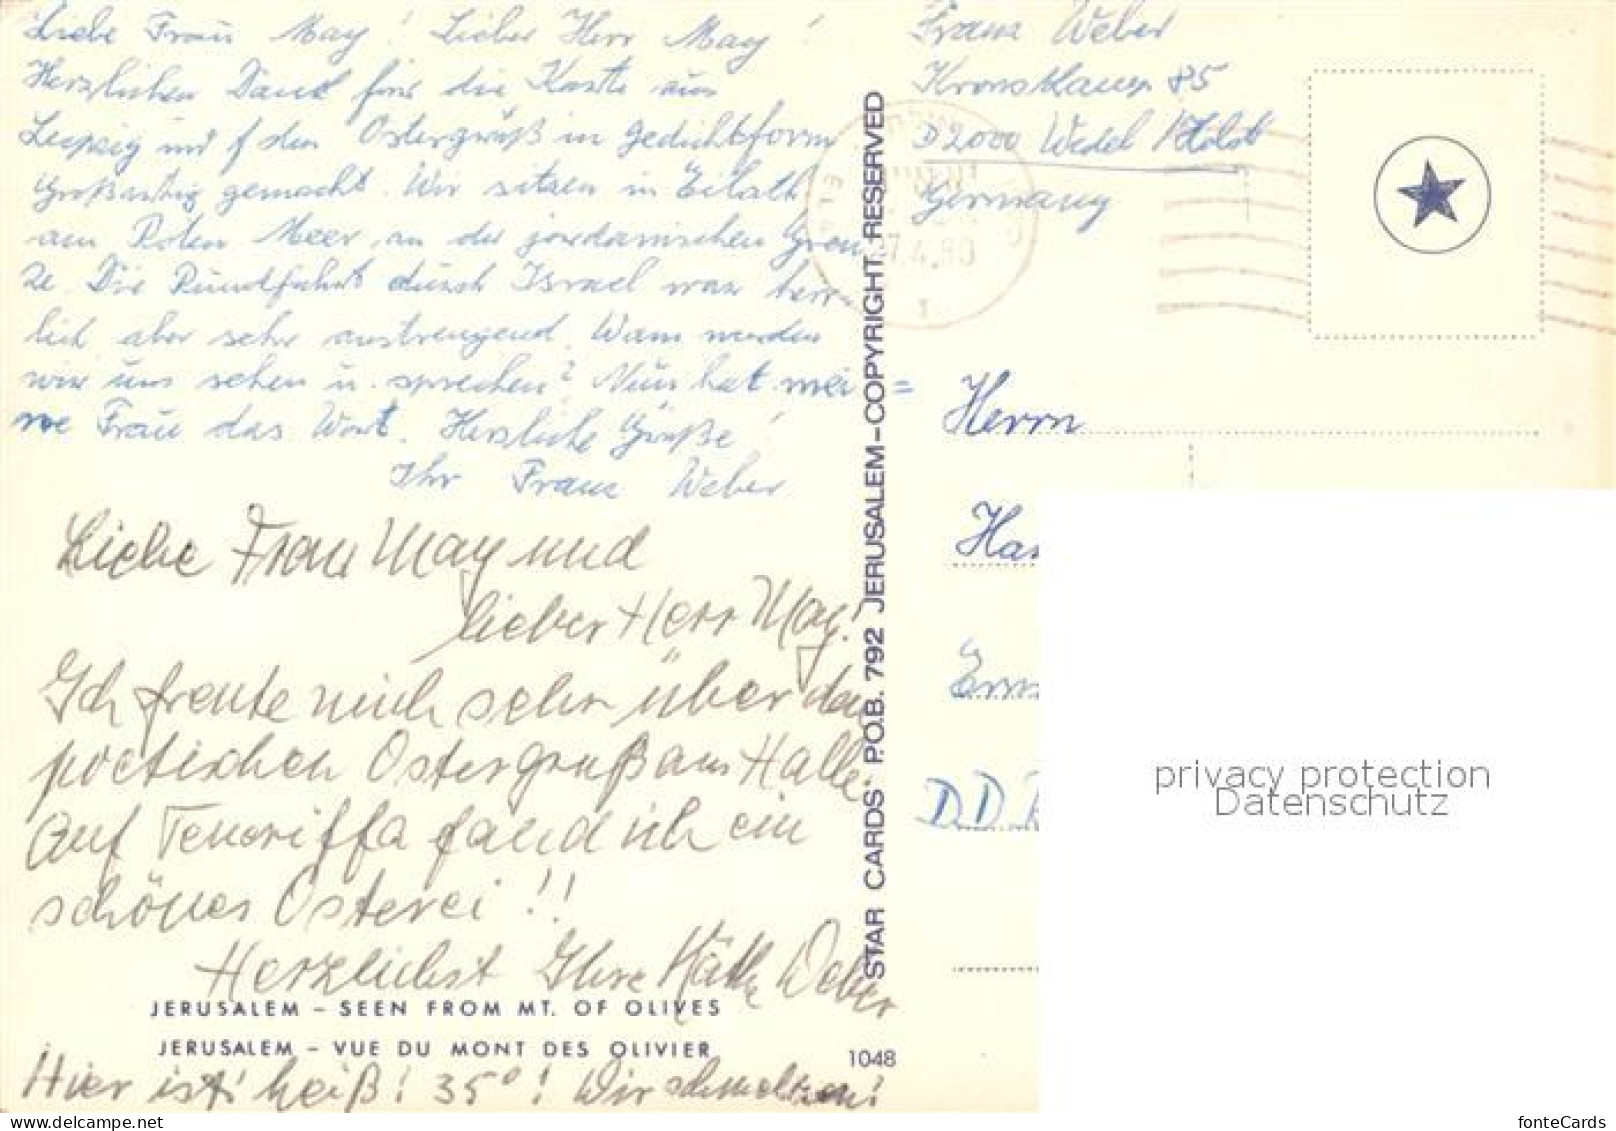 Liebe Frau May! Lieber Herr May!
Herzlichen Dank für die Karte aus
Leipzig und f den Ostergruß in Gedichtform
Großartig gemacht. Wir sitzen in Eilath
am Roten Meer an der jordanischen Gren
ze. Die Rundfahrt durch Israel war herr-
lich aber sehr anstrengend. Wann werden
wir uns sehen u. sprechen? Nun hat mei=
ne Frau das Wort. Herzliche Grüße!
Ihr Franz Weber
Liebe Frau May und
lieber Herr May!
Ich freute mich sehr über den
poetischen Ostergruß aus Halle.
Auf Teneriffa fand ich ein
schönes Osterei!!
Herzlichst Ihre Käthe Weber
JERUSALEM – SEEN FROM MT. OF OLIVES
JERUSALEM – VUE DU MONT DES OLIVIER
1048
Hier ist's heiß! 35°! Wir schmelzen!
STAR CARDS P.O.B. 792 JERUSALEM–COPYRIGHT RESERVED
Franz Weber
85
D 2000 Wedel / Holst
Germany
7.4.80
Herrn
Han
DDR
privacy protection
Datenschutz
www.delcampe.net
fonteCards